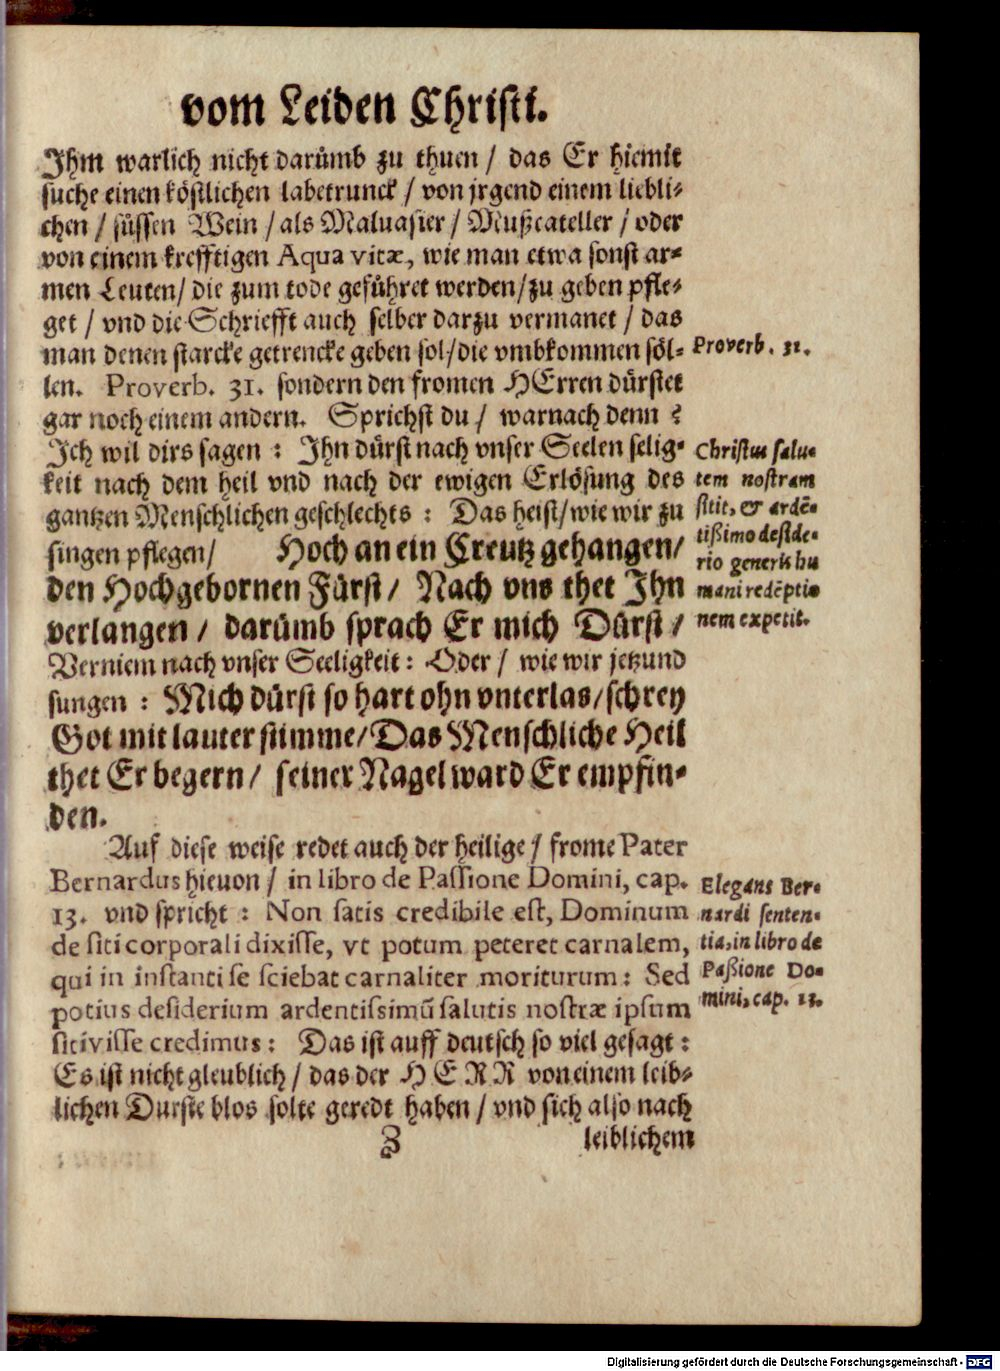 vom Leiden Christi.
Ihm warlich nicht darümb zu thuen / das Er hiemit
suche einen köstlichen labetrunck / von jrgend einem liebli-
chen / süssen Wein / als Maluasier / Mußcateller / oder
von einem krefftigen Aqua vitæ, wie man etwa sonst ar-
men Leuten/ die zum tode geführet werden/zu geben pfle-
get / vnd die Schriefft auch selber darzu vermanet / das
man denen starcke getrencke geben sol/die vmbkommen söl-
Proverb. 31.
len. Proverb. 31. sondern den fromen HErren dürstet
gar noch einem andern. Sprichst du / warnach denn ?
Ich wil dirs sagen : Ihn dürst nach vnser Seelen selig-
keit nach dem heil vnd nach der ewigen Erlösung des
gantzen Menschlichen geschlechts : Das heist/wie wir zu
singen pflegen/ Hoch an ein Creutz gehangen/
den Hochgebornen Fürst/ Nach vns thet Ihn
verlangen / darümb sprach Er mich Dürst /
Christus salu-
tem nostram
sitit, & ardē-
tißimo deside-
rio generis hu
mani redēptio
nem expetit.
Verniem nach vnser Seeligkeit : Oder / wie wir jetzund
sungen : Mich dürst so hart ohn vnterlas/schrey
Got mit lauter stimme/Das Menschliche Heil
thet Er begern/ seiner Nagel ward Er empfin-
den.
Auf diese weise redet auch der heilige / frome Pater
Bernardus hievon / in libro de Passione Domini, cap.
13. vnd spricht : Non satis credibile est, Dominum
de siti corporali dixisse, vt potum peteret carnalem,
qui in instanti se sciebat carnaliter moriturum : Sed
potius desiderium ardentissimū salutis nostræ ipsum
sitivisse credimus : Das ist auff deutsch so viel gesagt :
Elegans Ber-
nardi senten-
tia, in libro de
Paßione Do-
mini, cap. 13.
Es ist nicht gleublich / das der HERR von einem leib-
lichen Durste blos solte geredt haben / vnd sich also nach
Z leiblichem
Digitalisierung gefördert durch die Deutsche Forschungsgemeinschaft - DFG